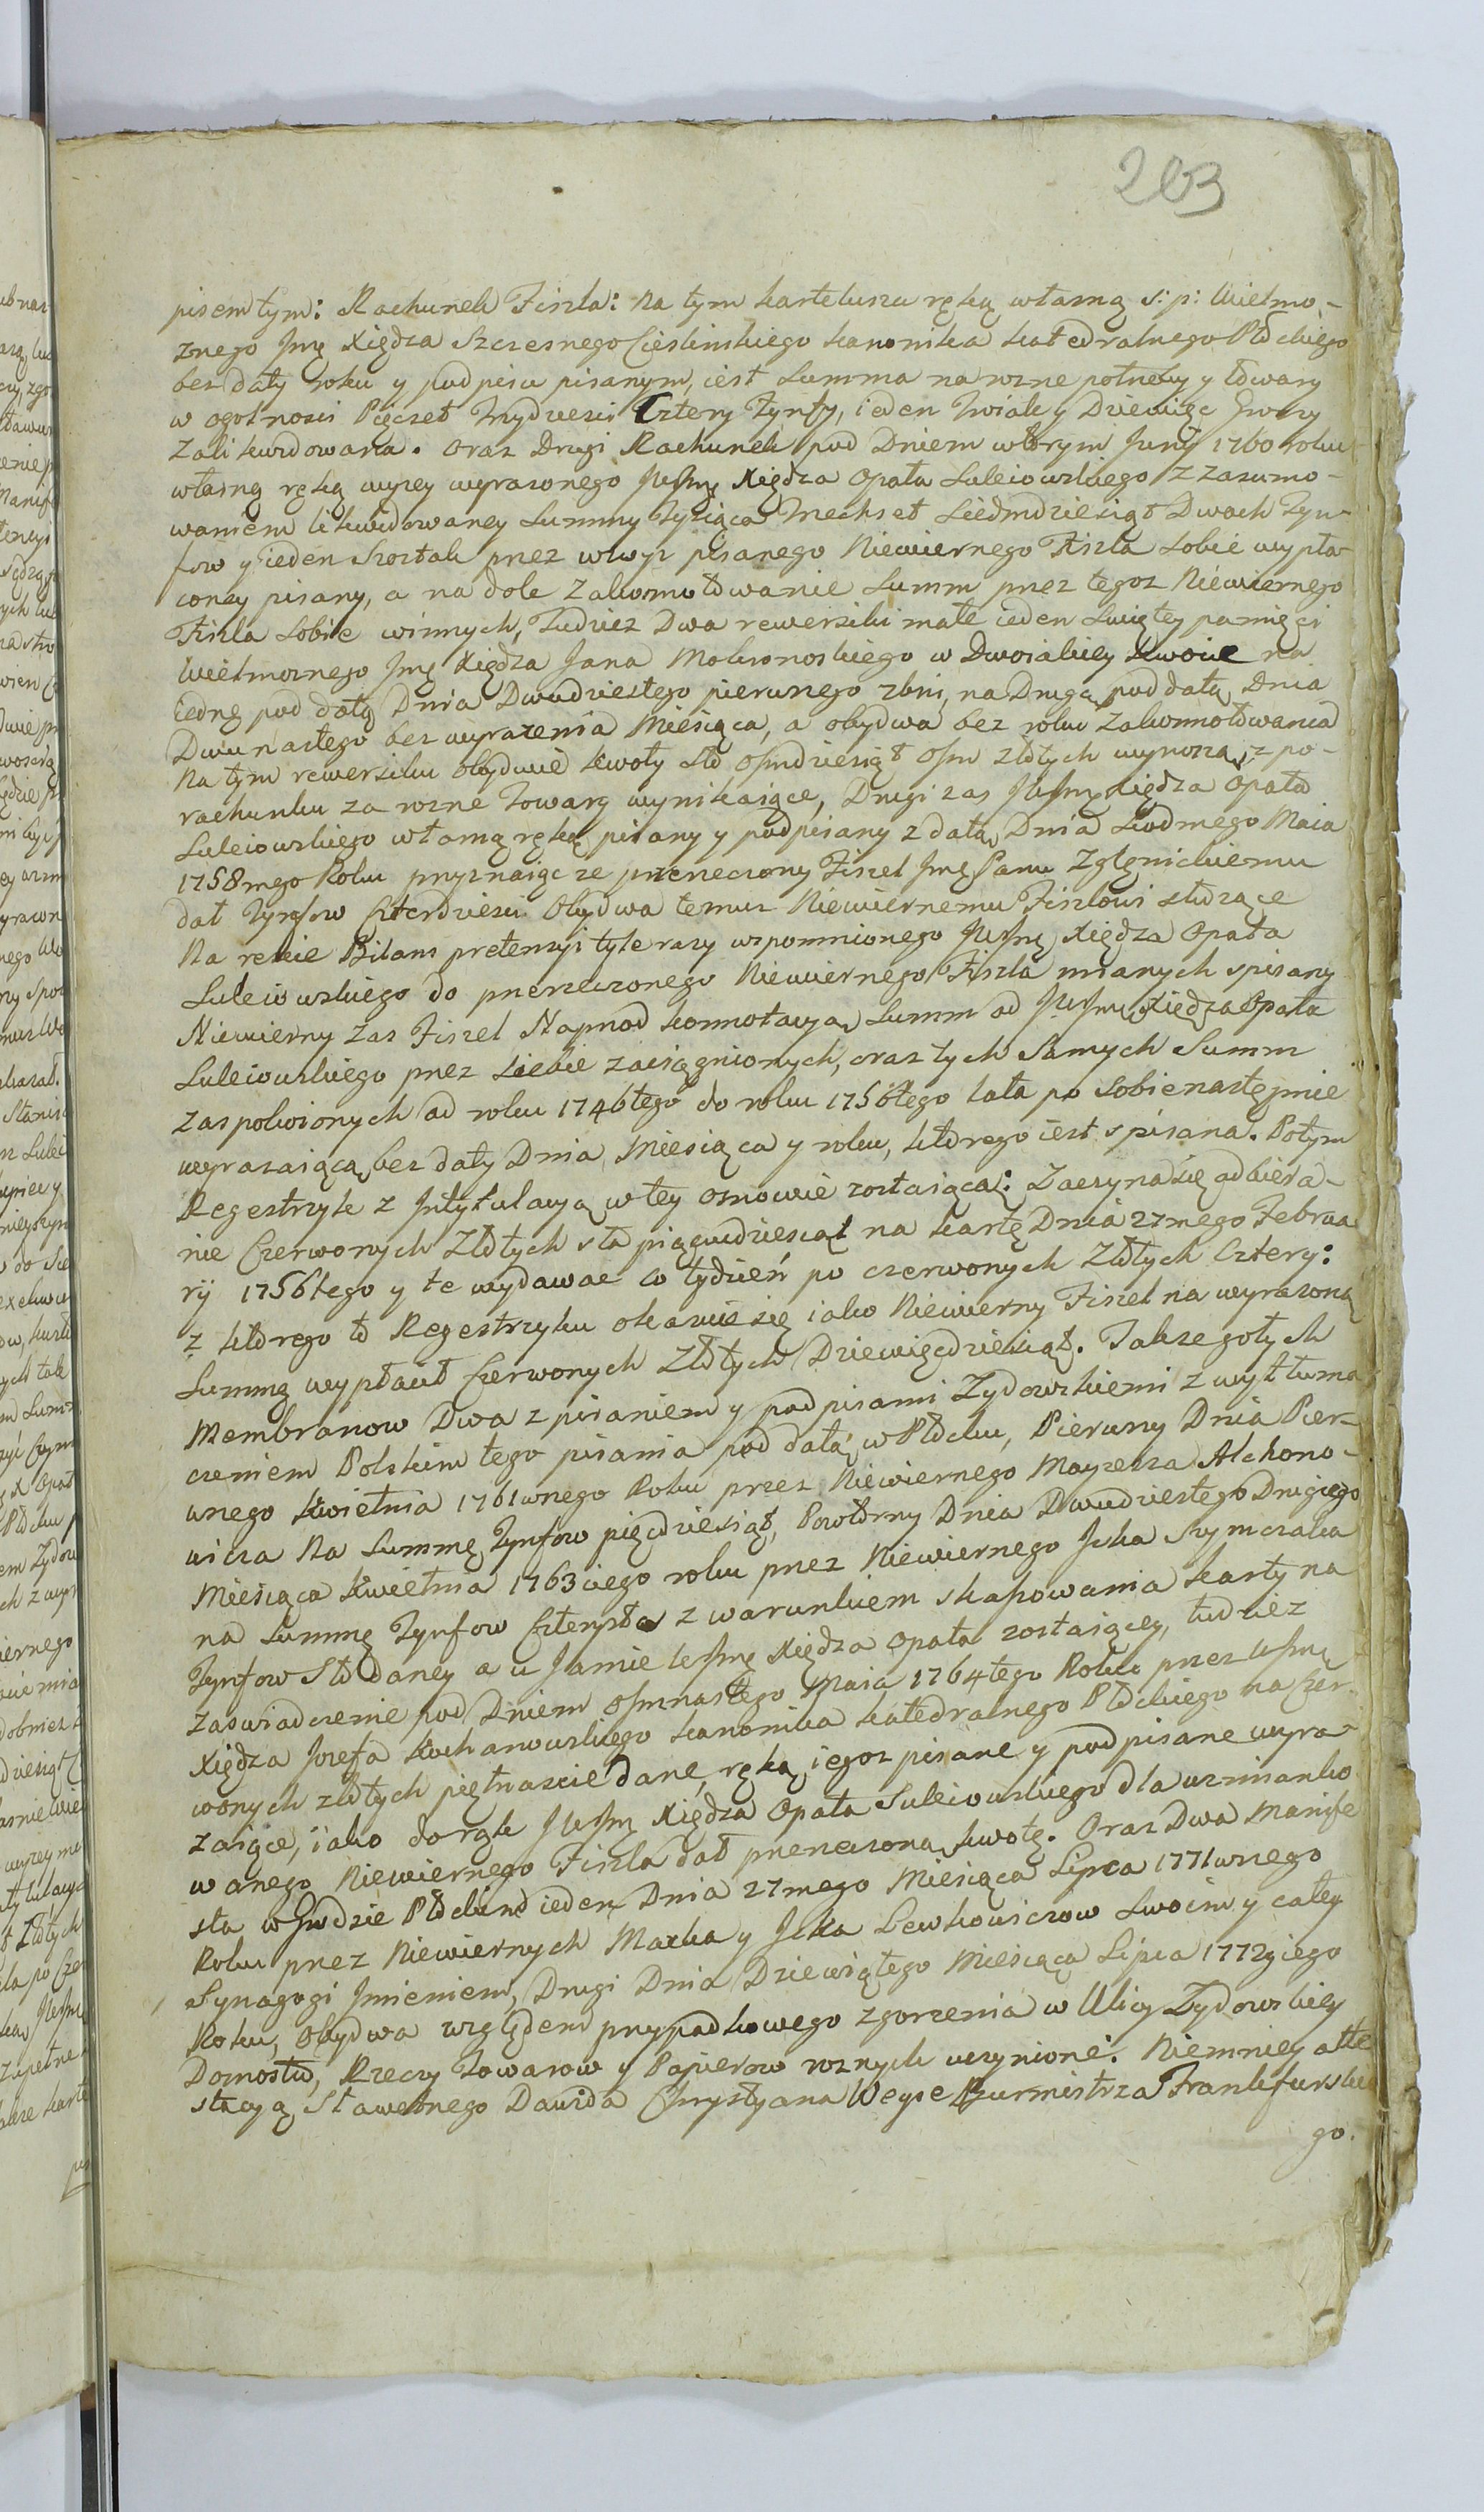 203
pisem tym: Rachunek Fiszla: Na tym karteluszu ręką własną s: p: Wielmo-
znego Jmę Xiędza Szczesnego Cieslinskiego kanonika katedralnego Płckiego
bez daty roku y podpisu pisanym, iest Summa na rozne potrzeby y towary
w ogolnosci Pięcset Trzydziesci Cztery Tynfy, ieden Troiak y Dziewięc Groszy
Zalikwidowana. Oraz Drugi Rachunek pod Dniem wtorym Junÿ 1760 roku
własną ręką wyzey wyrazonego JWJmę Xiędza Opata Suleiowskiego z zasumo-
waniem likwidowaney Summy Tysiąca Trzechset Siedmdziesiąt Dwoch Tyn-
fow y ieden Szostak przez wzwyz pisanego Niewiernego Fiszla Sobie wypła-
coney pisany, a na dole Zakonnotowanie Summ przez tegoz Niewiernego
Fiszla Sobie winnych, Tudziez Dwa rewersiki małe ieden Swiętey pamięci
Wielmoznego Jmę Xiędza Jana Mokronoskiego w Dwoiakiey kwocie na
iedną pod datą Dnia Dwudziestego pierwszego zbni, na Drugą pod datą Dnia
Dwunastego bez wyrazenia Miesiąca, a obydwa bez roku Zakonnotowania
Na tym rewersiku obydwie kwoty sto osmdziesiąt osm złotych wynoszą, z po-
rachunku za rozne Towary wynikaiące, Drugi zas JWJmę Xiędza Opata
Suleiowskiego własną ręką pisany y podpisany z datą Dnia Siodmego Maia
1758mego Roku przyznaiąc ze przerzeczony Fiszel Jmę Panu Zglenickiemu
dał Tynfow Czterdziesci Obydwa temuz Niewiernemu Fiszlowi słuzące
Na reszcie Bilans pretensyi tyle razy wspomnionego JWJmę Xiędza Opata
Suleiowskiego do przerzeczonego Niewiernego Fiszla mianych spisany
Niewierny zas Fiszel Naprzod konnotacyą Summ od JWJmę Xiędza Opata
Suleiowskiego przez Siebie zaciągnionych, oraz tych Samych Summ
zaspokoionych od roku 1746tego do roku 1756tego lata po Sobie następnie
wyrazaiącą, bez daty Dnia Miesiąca y roku, ktorego iest spisana. Potym
Regestrzyk z Jntytulacyą w tey osnowie zostaiącą: Zaczyna się odbiera-
nie Czerwonych Złotych sta pięcudziesiąt na kartę Dnia 27mego Februa
rÿ 1756tego y te wydawac co tydzień po czerwonych Złotych Cztery:
z ktorego to Regestrzyku okazuie się iako Niewierny Fiszel na wyrazoną
Summę wypłacił Czerwonych Złotych Dziewięcdziesiąt. Takze gołych
Membranow Dwa z pisaniem y podpisami Zydowskiemi z wytłuma
czeniem Polskim tego pisania pod datą w Płocku, Pierwszy Dnia Pier-
wszego Kwietnia 1761wszego Roku przez Niewiernego Moyzesza Alchono-
wicza Na Summę Tynfow pięcdziesiąt, Powtorny Dnia Dwudziestego Drugiego
Miesiąca Kwietnia 1763ciego roku przez Niewiernego Jcka Szymczaka
na Summę Tynfow Czterysta z warunkiem skassowania karty na
Tynfow Sto daney a u Jasnie WJmę Xiędza Opata zostaiącey, tudziez
zaswiadczenie pod Dniem osmnastego Maia 1764tego Roku przez WJmę
Xiędza Jozefa Kochanowskiego kanonika katedralnego Płockiego na Czer-
wonych złotych piętnascie dane, ręką iegoz pisane y podpisane wyra-
zaiące, iako do rąk JWJmę Xiędza Opata Suleiowskiego dla wzmianko
wanego Niewiernego Fiszla dał przerzeczoną kwotę. Oraz Dwa Manife
sta w Grodzie Płockim ieden Dnia 27mego Miesiąca Lipca 1771wszego
Roku przez Niewiernych Marka y Jcka Lewkowiczow Swoim y całey
Synagogi Jmieniem, Drugi Dnia Dziewiątego Miesiąca Lipca 1772giego
Roku, Obydwa względem przypadkowego zgorzenia w Ulicy Zydowskiey
Domostw, Rzeczy Towarow y Papierow roznych uczynione. Niemniey atte
stacyą Sławetnego Dawida Chrystyana Weyse Burmistrza Frankfurskie
go.